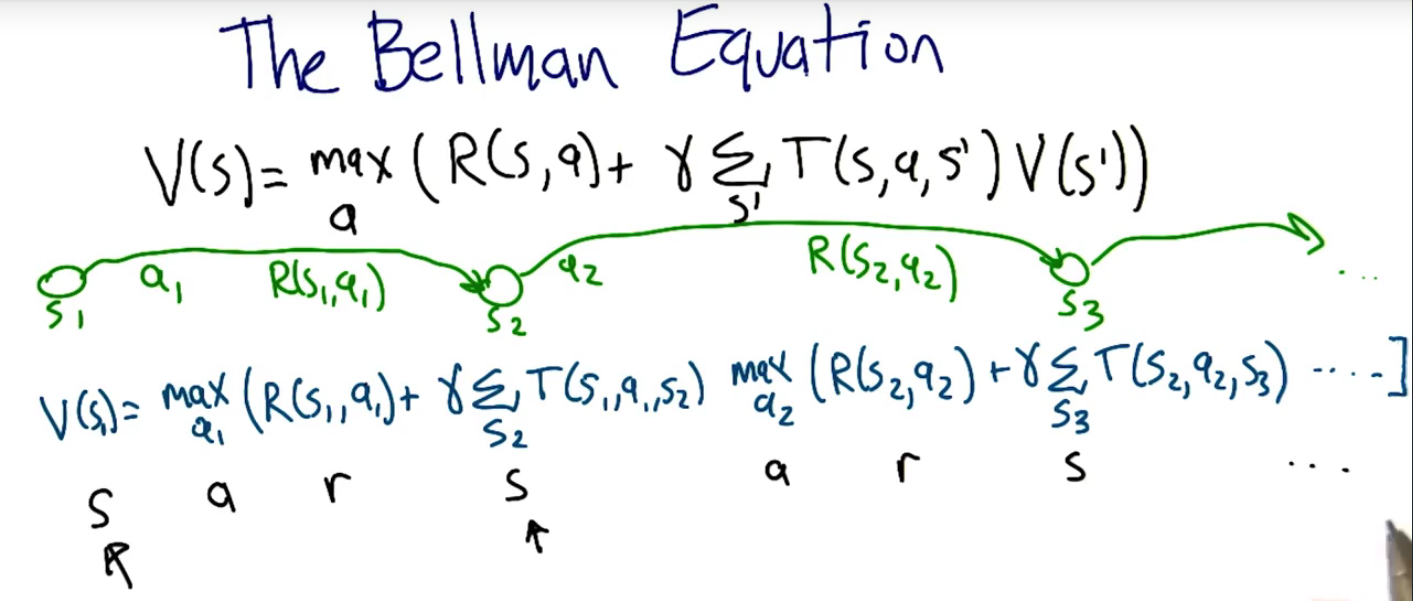 The Bellman Equation
V(s) = max_a (R(s,a) + γ Σ_s' T(s,a,s') V(s'))
s1 a1 R(s1,a1) s2 a2 R(s2,a2) s3 ...
V(s1) = max_a1 (R(s1,a1) + γ Σ_s2 T(s1,a1,s2) max_a2 (R(s2,a2) + γ Σ_s3 T(s2,a2,s3) ....]
s a r s a r s ...